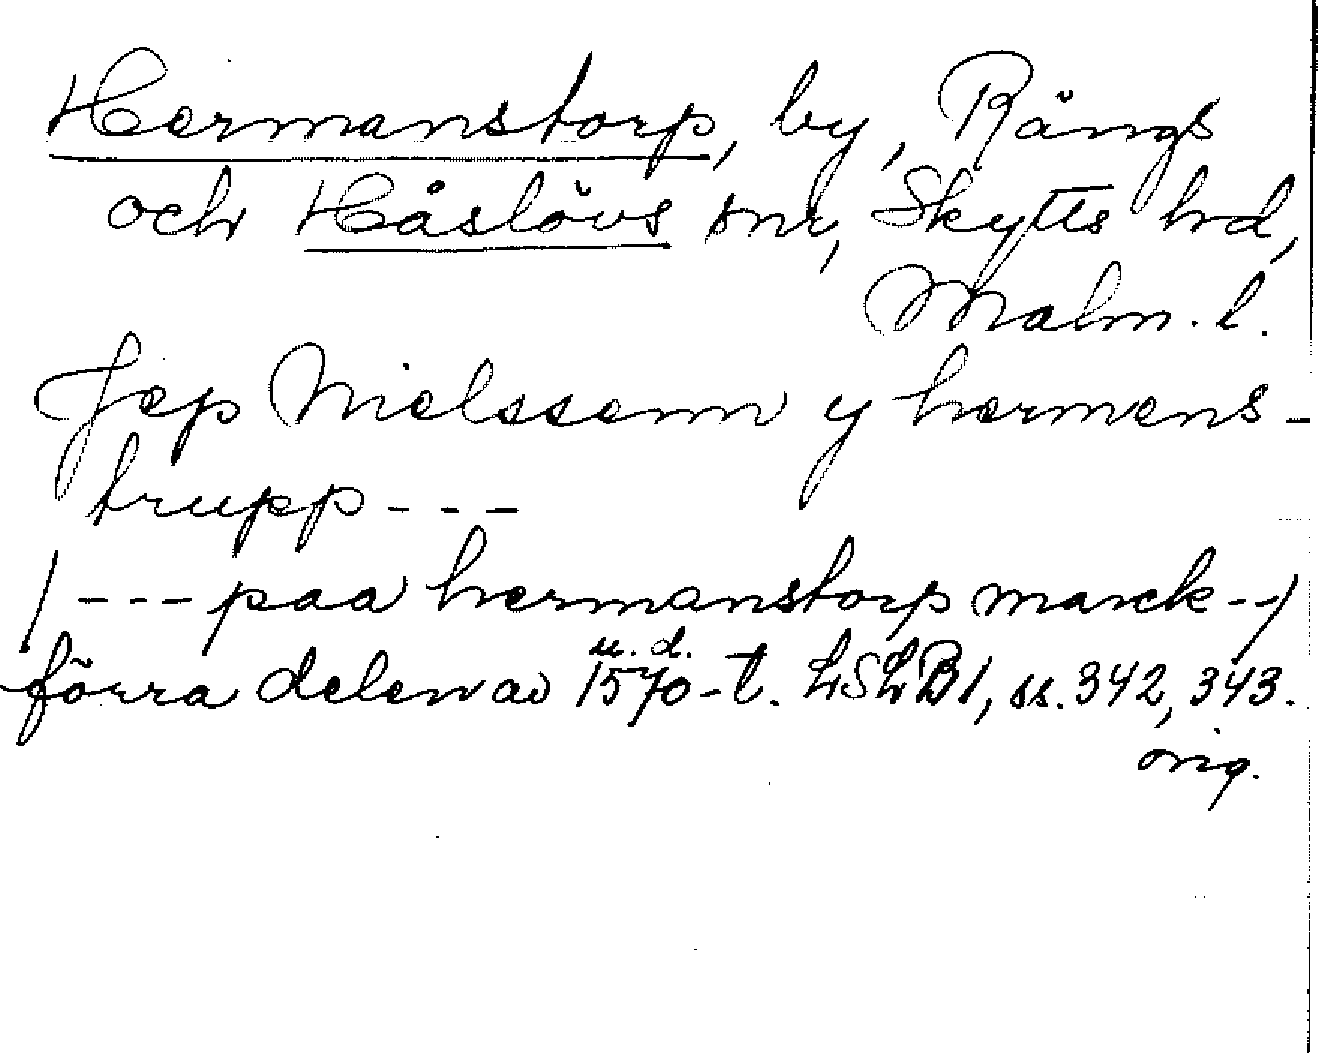 Hermanstorp, by, Rängs
och Håslövs snr, Skytts hd,
Malm. l.
Jep Nielssenn y hermens-
trupp - - -
/ - - - paa hermanstorp marck - -/
u. d.
förra delen av 1570-t. LSLB1, ss. 342, 343.
orig.